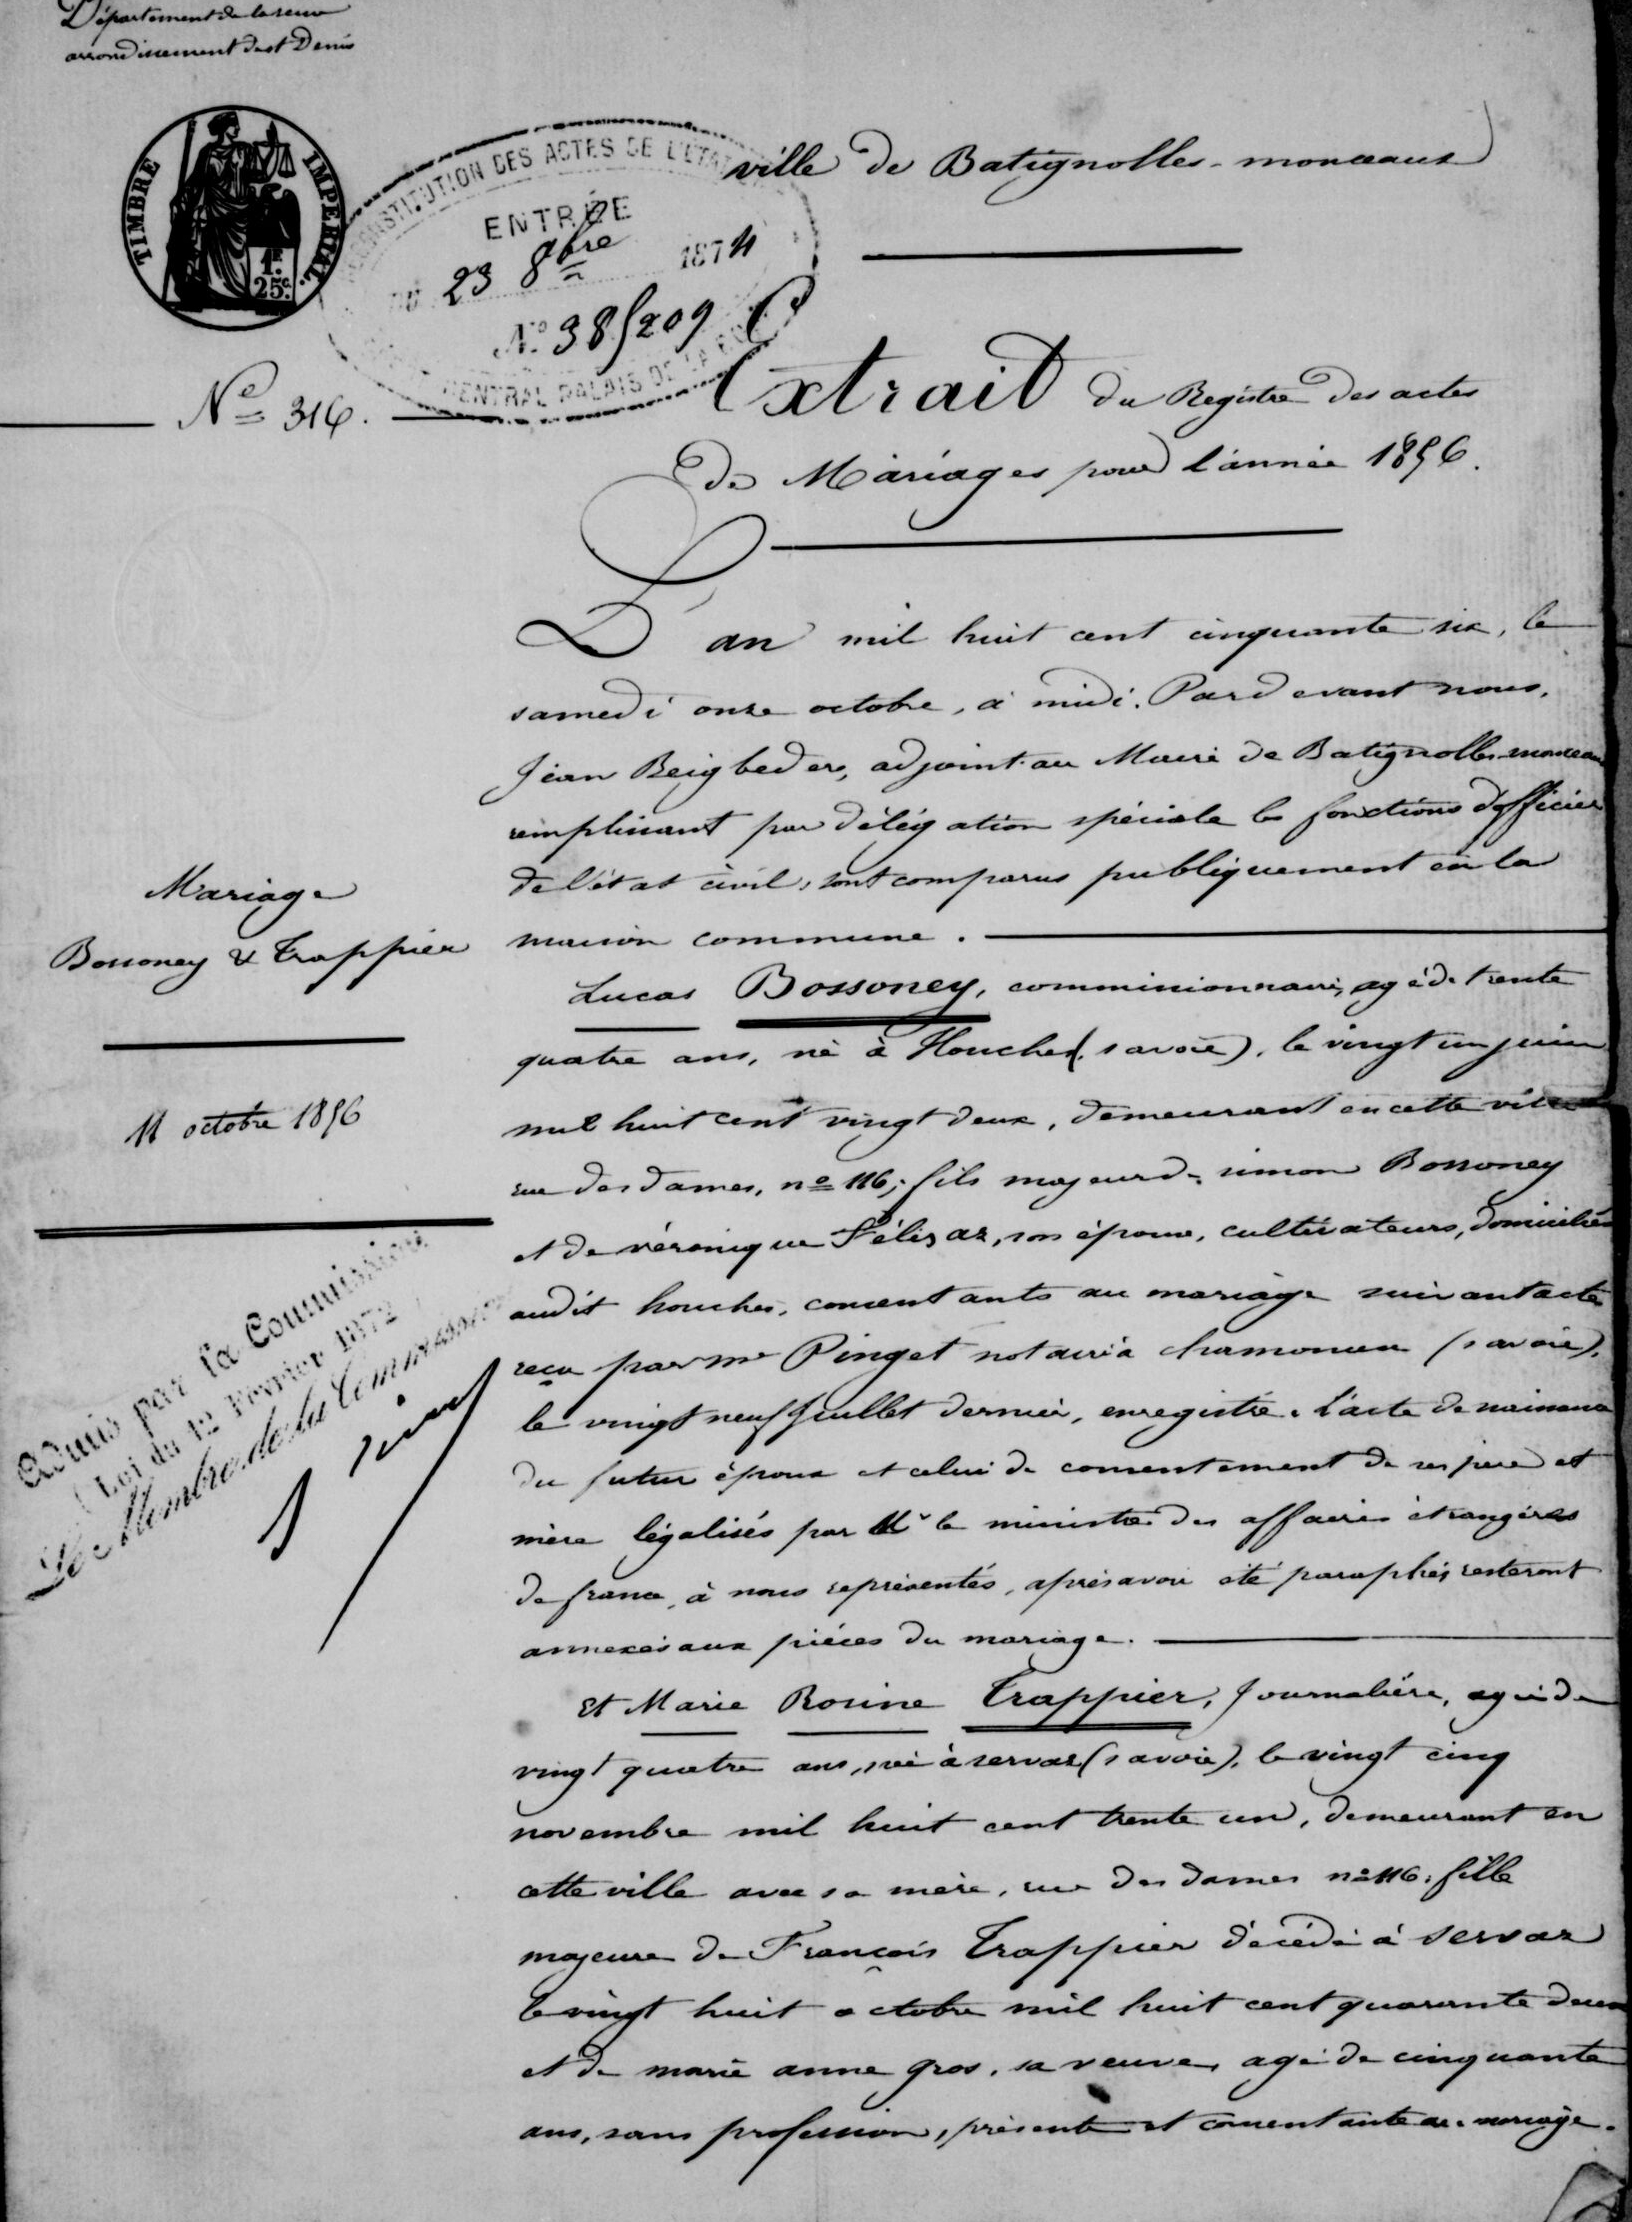 Département de la seine
arrondissement de st Denis
TIMBRE IMPÉRIAL
1F.
25c.
RECONSTITUTION DES ACTES DE L'ÉTAT
ENTRÉE
DU 23 8bre 1874
No 38/209
CENTRAL PALAIS DE LA
ville de Batignolles-monceaux
No 316.
Extrait du Registre des actes
De Mariages pour l'année 1856.
L'an mil huit cent cinquante six, le
samedi onze octobre, à midi. Pardevant nous,
Jean Beigbeder, adjoint au Maire de Batignolles-monceaux
remplissant par délégation spéciale les fonctions d'officier
de l'état civil, sont comparus publiquement en la
maison commune.
Mariage
Bossoney & Trappier
11 octobre 1856
Lucas Bossoney, commissionnaire, agé de trente
quatre ans, né à Houches (savoie), le vingt un juin
mil huit cent vingt deux, demeurant en cette ville
rue des dames, no 116; fils majeur de simon Bossoney
et de véronique Félisaz, son épouse, cultivateurs, domiciliés
audit houches, consentants au mariage suivant acte
reçu par me Pinget notaire à chamounix (savoie),
le vingt neuf Juillet dernier, enregistré. L'acte de naissance
du futur époux et celui de consentement de ses père et
mère légalisés par Mr le ministre des affaires étrangères
de france, à nous représentés, après avoir été paraphés, resteront
annexés aux pièces du mariage.
Admis par la Commission
(Loi du 12 Février 1872)
Le Membre de la Commission
Et Marie Rosine Trappier, Journalière, agée de
vingt quatre ans, née à servoz (savoie), le vingt cinq
novembre mil huit cent trente un, demeurant en
cette ville avec sa mère, rue des dames no 116; fille
majeure de François Trappier décédé à Servoz
le vingt huit octobre mil huit cent quarante deux
et de marie anne gros, sa veuve, agée de cinquante
ans, sans profession, présente et consentante au mariage.